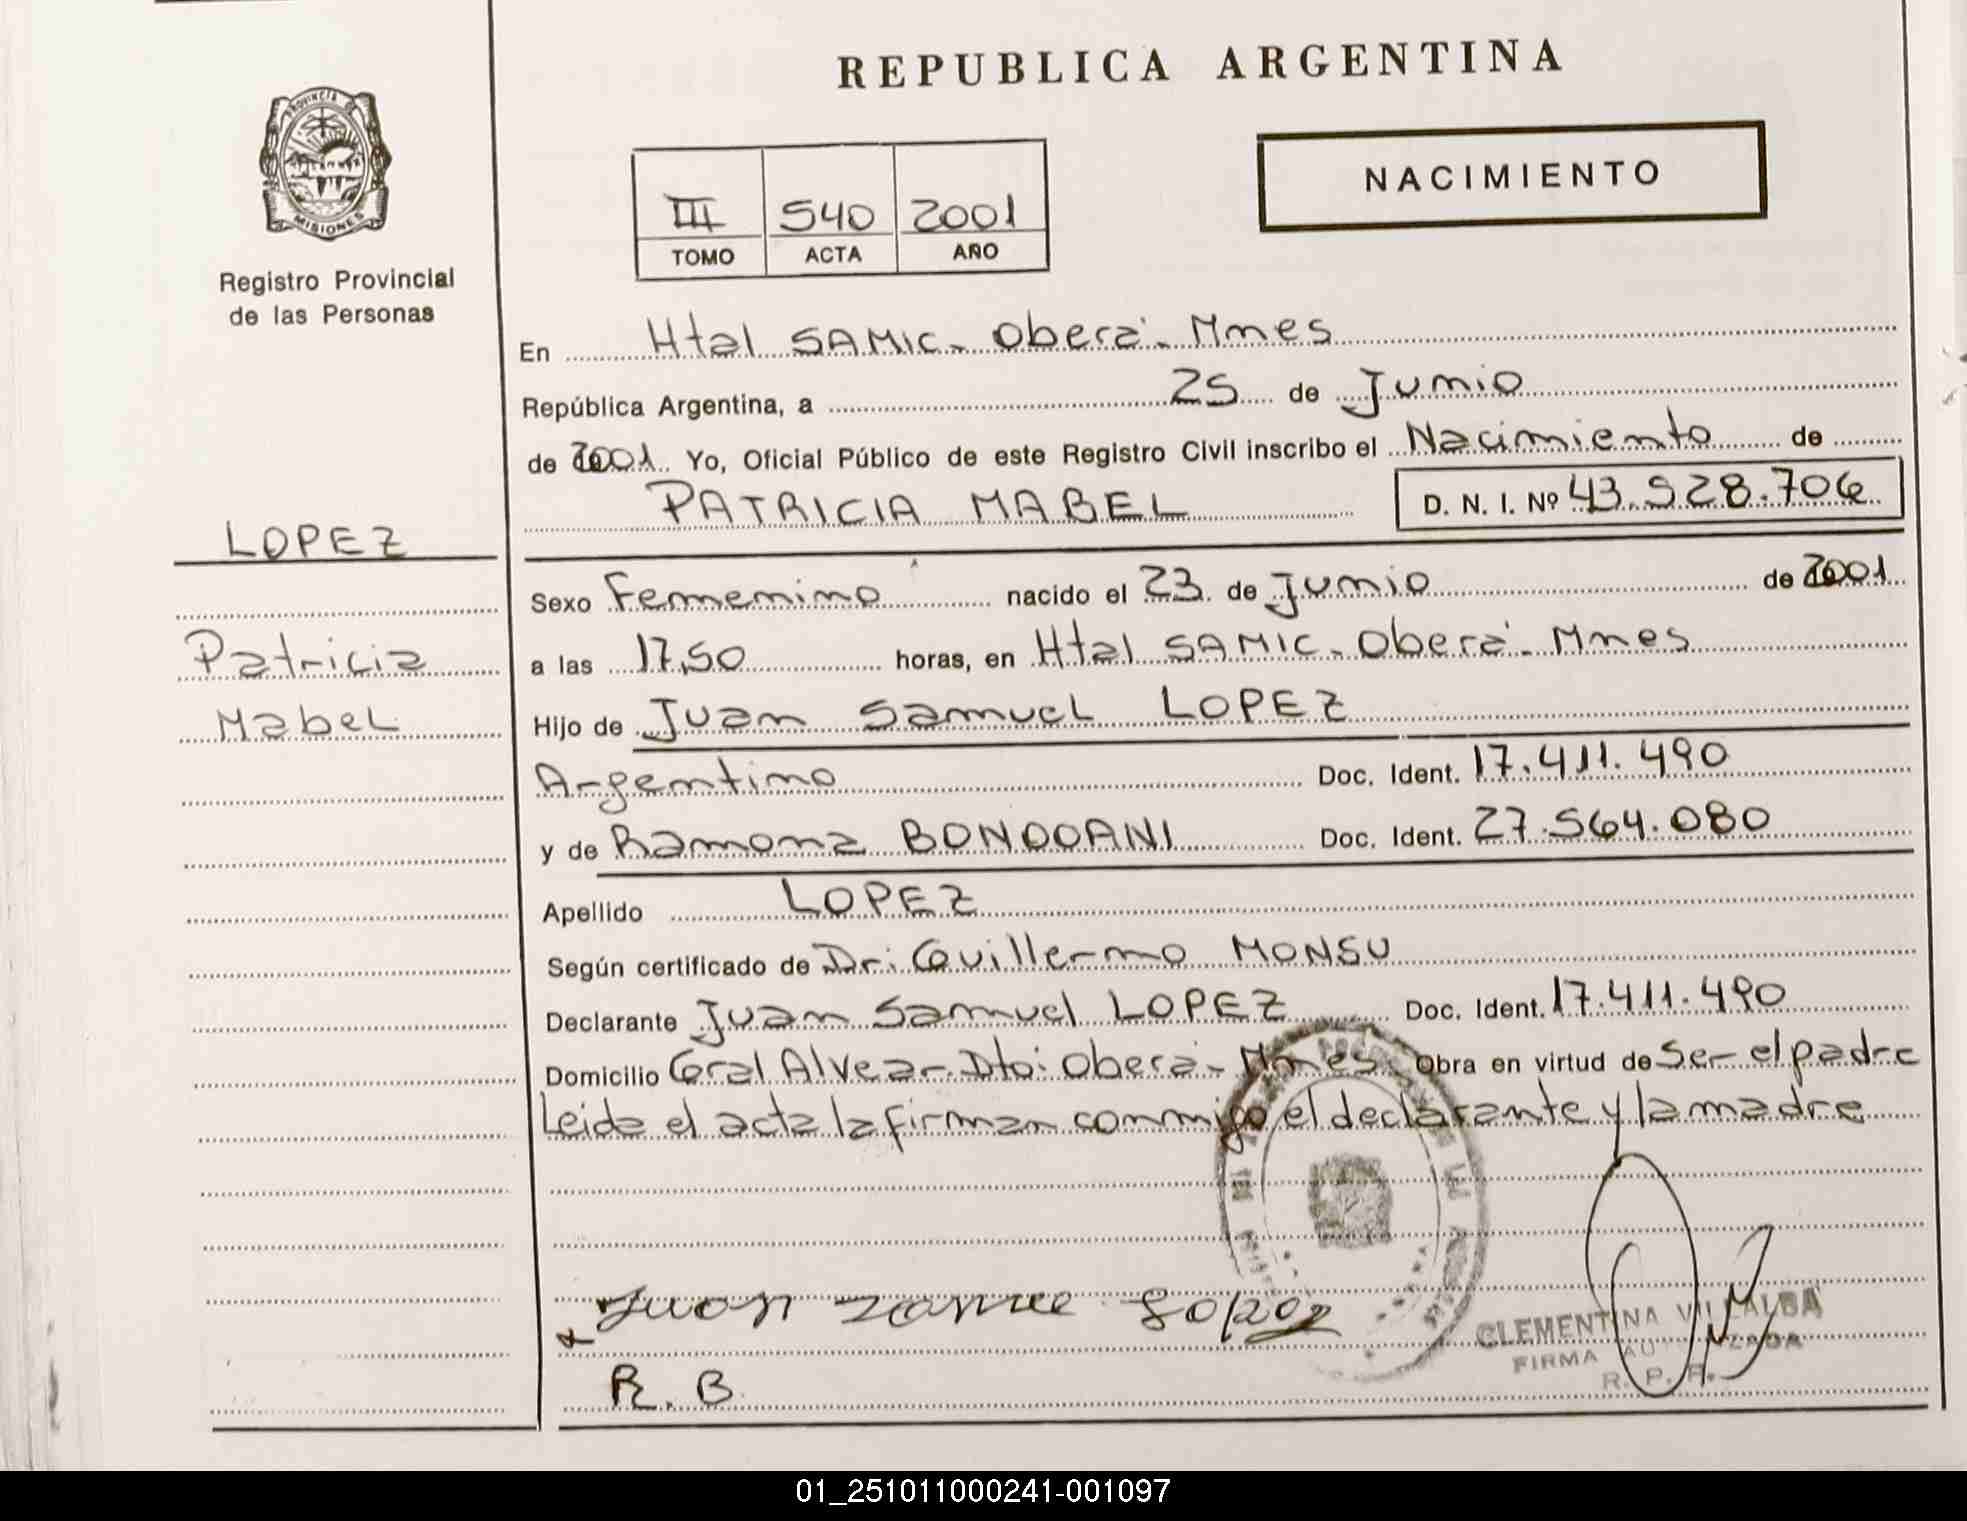 REPUBLICA ARGENTINA
PROVINCIA DE
MISIONES
Registro Provincial
de las Personas
NACIMIENTO
III 540 2001
TOMO ACTA AÑO
En Htal SAMIC - Oberá - Mnes
República Argentina, a 25 de Junio
de 2001 Yo, Oficial Público de este Registro Civil inscribo el Nacimiento de
PATRICIA MABEL D. N. I. Nº 43.528.706
LOPEZ
Patricia
Mabel
Sexo Femenino nacido el 23 de Junio de 2001
a las 17,50 horas, en Htal SAMIC - Oberá - Mnes
Hijo de Juan Samuel LOPEZ
Argentino Doc. Ident. 17.411.490
y de Ramona BONDOANI Doc. Ident. 27.564.080
Apellido LOPEZ
Según certificado de Dr: Guillermo MONSU
Declarante Juan Samuel LOPEZ Doc. Ident. 17.411.490
Domicilio Gral Alvear - Dto: Oberá - Mnes Obra en virtud de Ser el padre
Leida el acta la firman conmigo el declarante y la madre
Lopez
R. B.
CLEMENTINA VILLALBA
FIRMA AUTORIZADA
R. P. P.
01_251011000241-001097